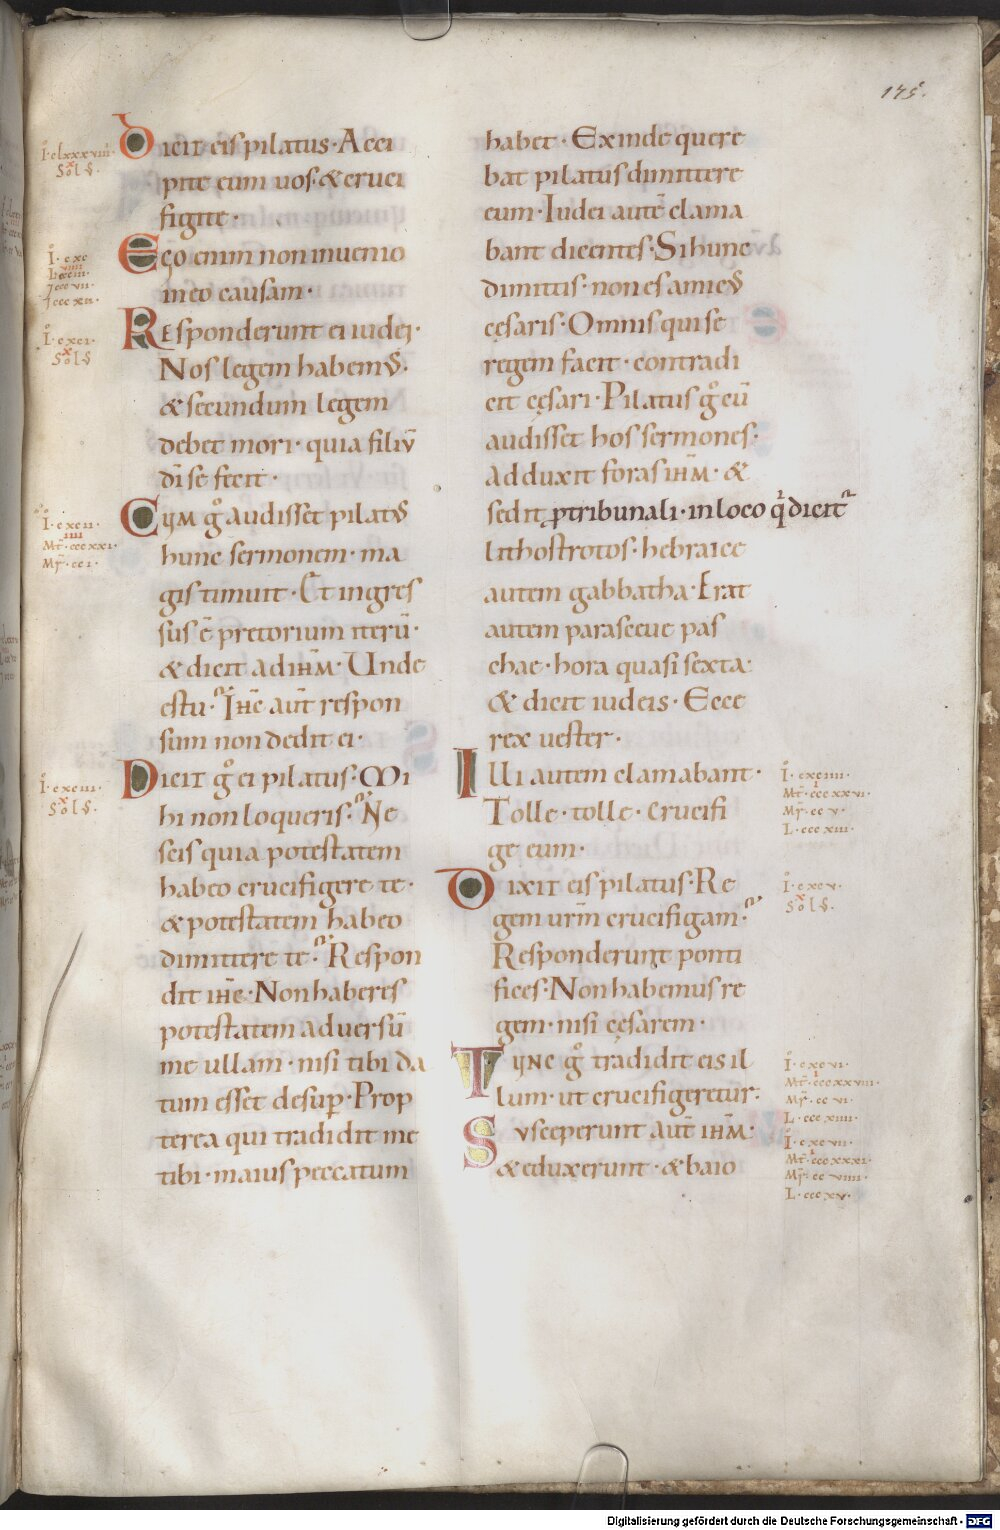 175.
I · clxxxviii ·
Sol ꝰ.
Dicit eis pilatus · Acci
pite eum uos · & cruci
figite ·
I · cxc
L · ccciii ·
I · cxci ·
Solꝰ
Ego enim non inuenio
in eo causam ·
Responderunt ei iudei ·
Nos legem habemꝰ ·
& secundum legem
debet mori · quia filiū
dī se fecit ·
I · cxcii ·
Mt̄ · cccxxi ·
Mr̄ · cci ·
Cum g̊ audisset pilatꝰ
hunc sermonem · ma
gis timuit · Et ingres
sus ē pretorium iterū ·
& dicit ad ihm̄ · Unde
es tu · Ihc̄ aūt respon
sum non dedit ei ·
I · cxciii ·
Solꝰ ·
Dicit g̊ ei pilatus · Mi
hi non loqueris · Ne
scis quia potestatem
habeo crucifigere te ·
& potestatem habeo
dimittere te · Respon
dit ihc̄ · Non haberes
potestatem aduersū
me ullam · nisi tibi da
tum esset desup̄ · Prop
terea qui tradidit me
tibi · maius peccatum
habet · Exinde quere
bat pilatus dimittere
eum · Iudei autē clama
bant dicentes · Si hunc
dimittis · non es amicꝰ
cęsaris · Omnis qui se
regem facit · contradi
cit cęsari · Pilatus g̊ cū
audisset hos sermones ·
adduxit foras ihm̄ · &
sedit ꝓ tribunali · in loco q̄ dicit
lithostrotos · hebraice
autem gabbatha · Erat
autem parasceue pas
chae · hora quasi sexta ·
& dicit iudeis · Ecce
rex uester ·
Illi autem clamabant ·
Tolle · tolle · crucifi
ge eum ·
I · cxciiii ·
Mt̄ · cccxxvi ·
Mr̄ · ccv ·
L · cccxiii ·
Dixit eis pilatus · Re
gem urm̄ crucifigam ·
Responderunt ponti
fices · Non habemus re
gem · nisi cęsarem ·
I · cxcv ·
Solꝰ ·
Tunc g̊ tradidit eis il
lum · ut crucifigeretur ·
Susceperunt aūt ihm̄ ·
& eduxerunt · & baio
I · cxcvi ·
Mt̄ · cccxxviii ·
Mr̄ · ccvi ·
L · cccxiiii ·
I · cxcvii ·
Mt̄ · cccxxxi ·
Mr̄ · ccviiii ·
L · cccxv ·
Digitalisierung gefördert durch die Deutsche Forschungsgemeinschaft - DFG